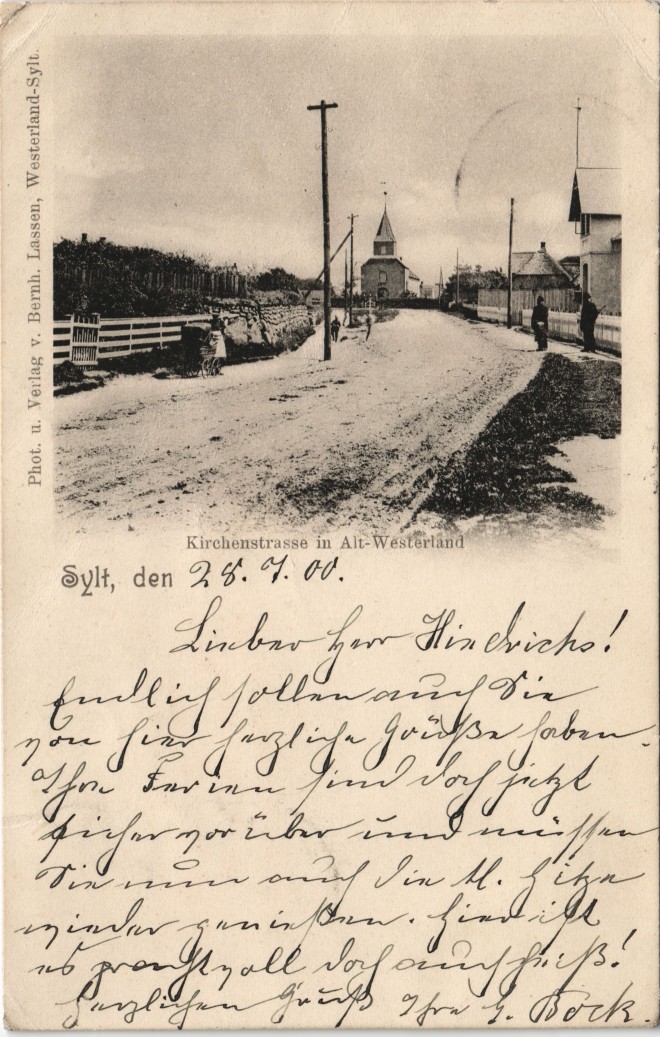 Phot. u. Verlag v. Bernh. Lassen, Westerland-Sylt.
Kirchenstrasse in Alt-Westerland
Sylt, den 28. 7. 00.
Lieber Herr Hindrichs!
Endlich sollen auch Sie
von hier herzliche Grüße haben.
Ihre Ferien sind doch jetzt
sicher vorüber und müssen
Sie nun auch die Hitze
wieder genießen. Hier ist
es prachtvoll doch auch heiß!
Herzlichen Gruß Ihre G. Bock.